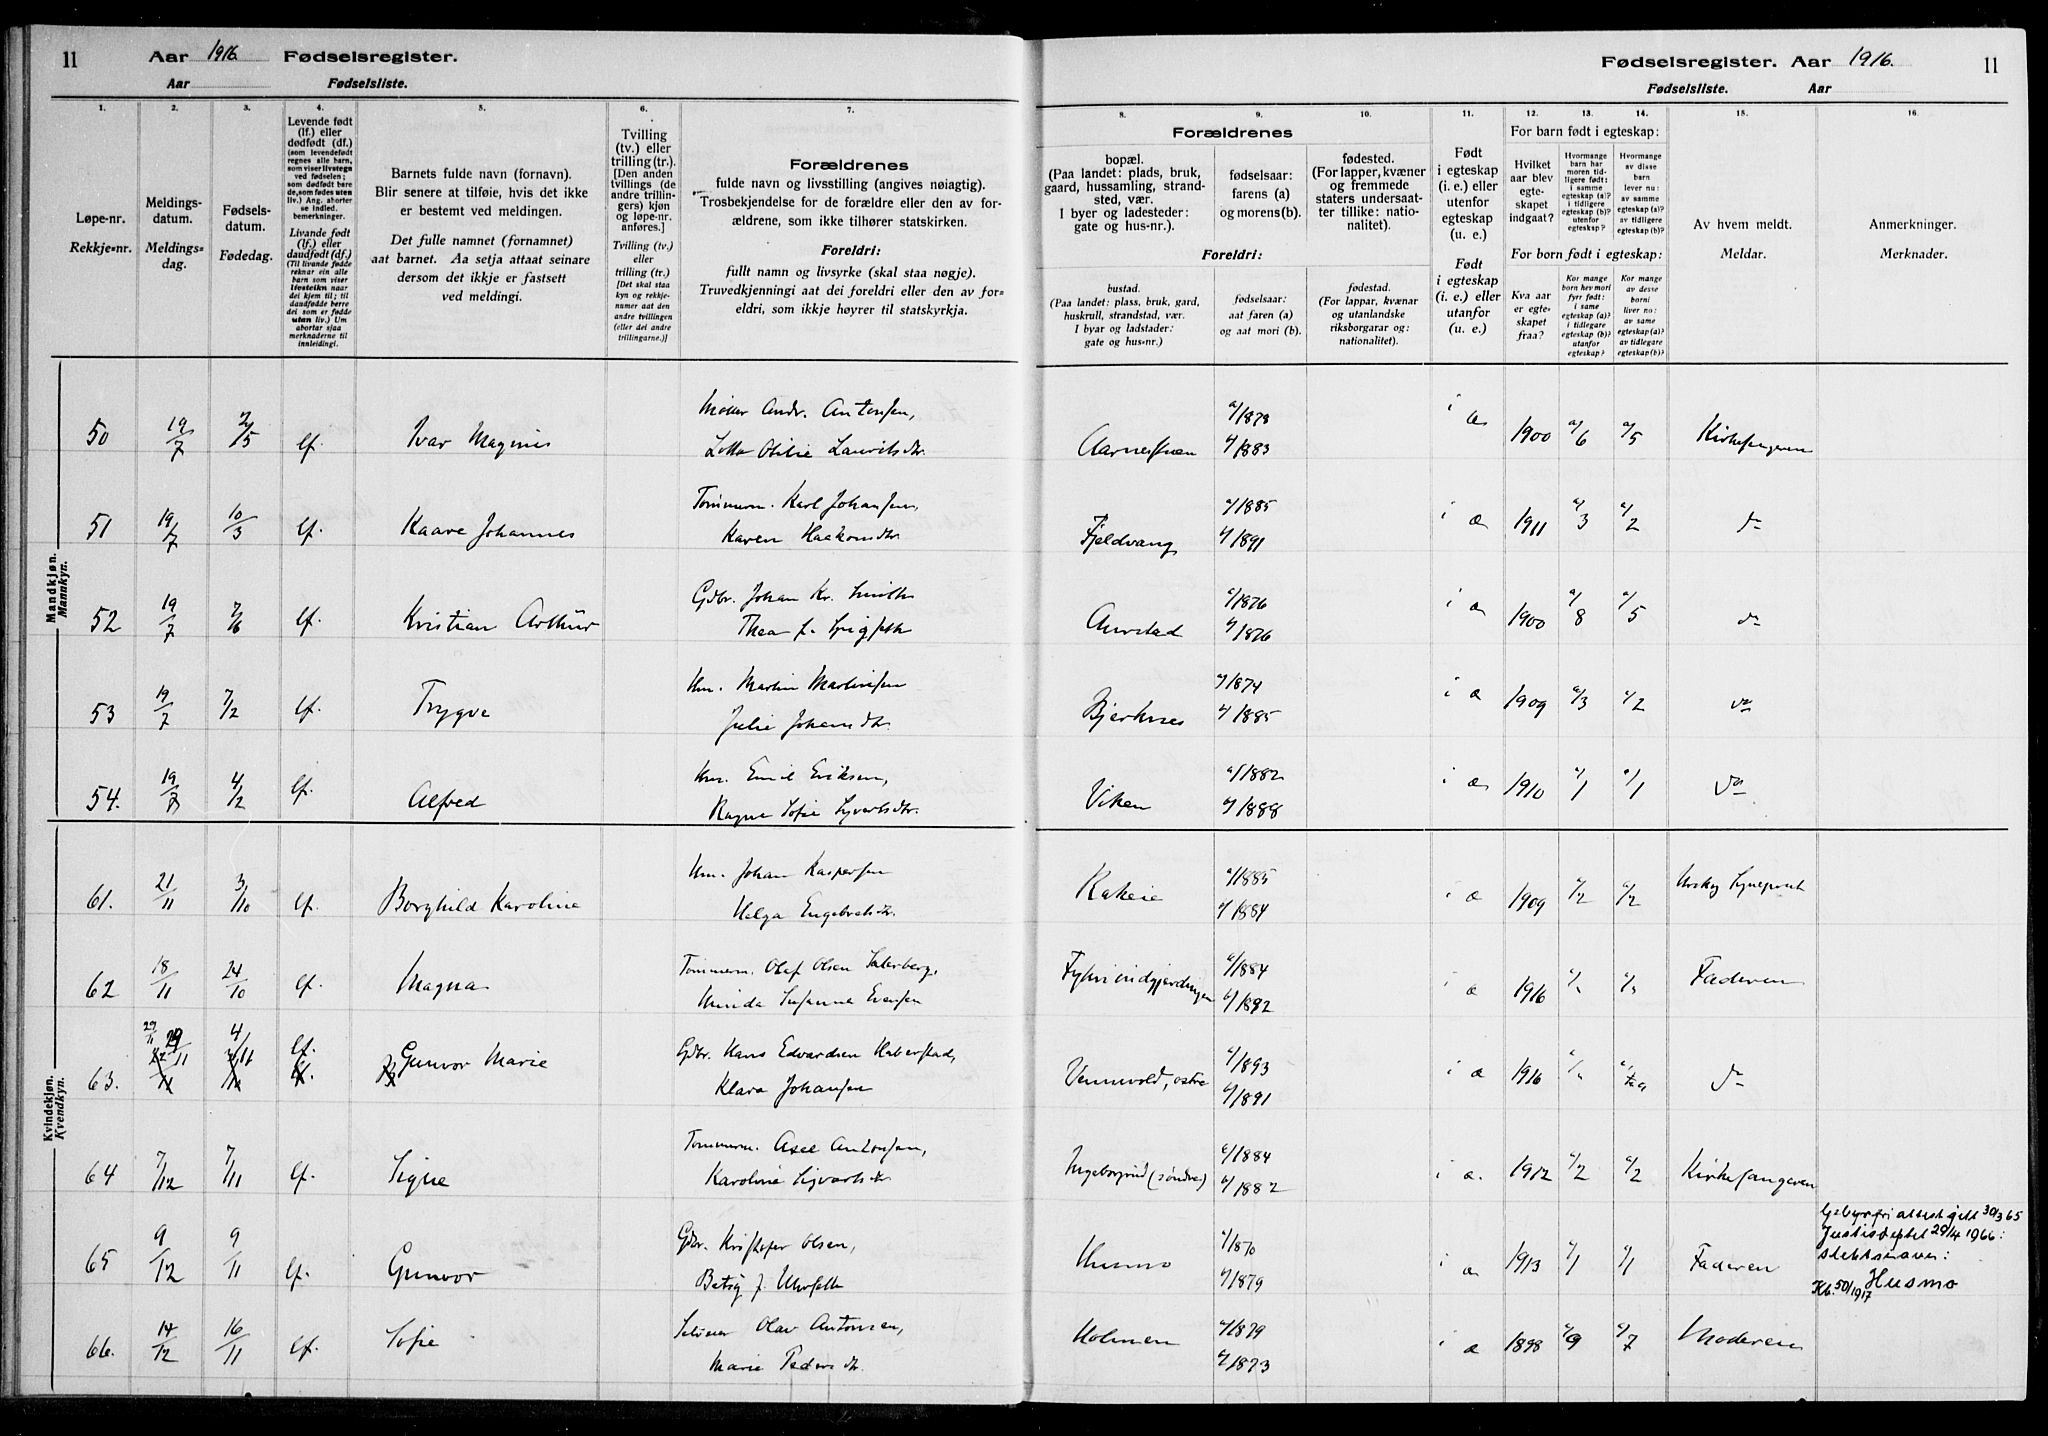 11 Aar 1916. Fødselsregister.
Aar Fødselsliste.
Fødselsregister. Aar 1916. 11
Fødselsliste. Aar
1. 2. 3. 4. 5. 6. 7.
Løpe-nr.
Rekkje-nr.
Meldings-
datum.
Meldings-
dag.
Fødsels-
datum.
Fødedag.
Levende født
(lf.) eller
dødfødt (df.)
(som levendefødt
regnes alle barn,
som viser livstegn
ved fødselen;
som dødfødt bare
de, som fødes uten
liv.) Ang. aborter
se indled.
bemerkninger.
Livande født
(lf.) eller
daudfødt (df.)
(Til livande fødde
reknar ein alle
barn som viser
livsteikn naar
dei kjem til; til
daudfødde berre
dei som er fødde
utan liv.) Um
abortar sjaa
merknaderne til
innleidingi.
Barnets fulde navn (fornavn).
Blir senere at tilføie, hvis det ikke
er bestemt ved meldingen.
Det fulle namnet (fornamnet)
aat barnet. Aa setja attaat seinare
dersom det ikkje er fastsett
ved meldingi.
Tvilling
(tv.) eller
trilling (tr.).
[Den anden
tvillings (de
andre trillin-
gers) kjøn
og løpe-nr.
anføres.]
Tvilling (tv.)
eller
trilling (tr.)
[Det skal staa
kyn og rekkje-
numer aat den
andre tvillingen
(eller dei andre
trillingarne.)]
Forældrenes
fulde navn og livsstilling (angives nøiagtig).
Trosbekjendelse for de forældre eller den av for-
ældrene, som ikke tilhører statskirken.
Foreldri:
fullt namn og livsyrke (skal staa nøgje).
Truvedkjenningi aat dei foreldri eller den av for-
eldri, som ikkje høyrer til statskyrkja.
8. 9. 10. 11. 12. 13. 14. 15. 16.
Forældrenes
bopæl.
(Paa landet: plads, bruk,
gaard, hussamling, strand-
sted, vær.
I byer og ladesteder:
gate og hus-nr.).
fødselsaar:
farens (a)
og morens (b).
fødested.
(For lapper, kvæner
og fremmede
staters undersaat-
ter tillike: natio-
nalitet).
Foreldri:
bustad.
(Paa landet: plass, bruk, gard,
huskrull, strandstad, vær.
I byar og ladstader:
gate og hus-nr.)
fødselsaar:
aat faren (a)
og aat mori (b).
fødestad.
(For lappar, kvænar
og utanlandske
riksborgarar og:
nationalitet).
Født
i egteskap
(i. e.) eller
utenfor
egteskap
(u. e.)
Født
i egteskap
(i. e.) eller
utanfor
(u. e.)
For barn født i egteskap:
Hvilket
aar blev
egte-
skapet
indgaat?
Hvormange
barn har
moren tid-
ligere født:
i samme
egteskap (a)?
i tidligere
egteskap (b)?
utenfor
egteskap?
Hvormange
av disse
barn
lever nu:
av samme
egteskap (a)?
av tidligere
egteskap (b)?
For born født i egteskap:
Kva aar
er egte-
skapet
fraa?
Kor mange
born hev mori
fyrr født:
i same
egteskap (a)?
i tidlegare
egteskap (b)?
utanfor
egteskap?
Kor mange
av desse
borni
liver no:
av same
egteskap (a)?
av tidlegare
egteskap (b)?
Av hvem meldt.
Meldar.
Anmerkninger.
Merknader.
Mandkjøn.
Mannkyn.
50 19/7 2/5 lf. Ivar Magnus Andr. Antonsen, a/1878 i æ 1900 a/6 a/5 Kirkesangeren
Otilie b/1883
51 19/7 10/3 lf. Kaare Johannes Tømmerm. Karl Johansen, Fjeldvang a/1885 i æ 1911 a/3 a/2 do
Karen Haakonsdtr. b/1891
52 19/7 7/6 lf. Kristian Arthur Gdbr. Johan Kr. Aurstad a/1876 i æ 1900 a/8 a/5 do
Thea b/1876
53 19/7 7/2 lf. Trygve Hm. Martin Martinsen Bjerknes a/1874 i æ 1909 a/3 a/2 do
Julie Johansdtr. b/1885
54. 19/7 4/2 lf. Alfred Hm. Emil Eriksen, Viken a/1882 i æ 1910 a/1 a/1 do
Ragna Sofie Syvertsdtr. b/1888
Kvindekjøn.
Kvendkyn.
61. 21/11 3/10 lf. Borghild Karoline Hm. Johan Kaspersen Kakeie a/1885 i æ 1909 a/2 a/2 Urskog
Helga Engebretsdtr. b/1884
62 18/11 24/10 lf. Magna Tømmerm. Olaf Olsen a/1884 i æ 1916 Faderen
Minda Susanna Evensen b/1892
63. 29/11 4/11 lf. Gunvor Marie Gdbr. Hans Edvardsen Haberstad, Vennevold, østre a/1893 i æ 1916 do
Klara Johansen b/1891
64 7/12 7/11 lf. Signe Tømmerm. Axel Antonsen, Ingeborgrud (søndre) a/1884 i æ. 1912 a/2 a/2 Kirkesangeren
Karoline Syvertsdtr b/1882
65 9/12 9/11 lf. Gunvor Gdbr. Kristofer Olsen, Husmo a/1870 i æ 1913 a/1 a/1 Faderen
Betsy f. b/1879
Gebyrfri attest gitt 30/3 65
Justisdeptet 29/4 1966:
slektsnavn:
Husmo
Kb. 50/1917
66. 14/12 16/11 lf. Sofie Olav Antonsen, Holmen a/1879 i æ 1898 a/9 a/7 Moderen
Marie Pedersdtr. b/1873